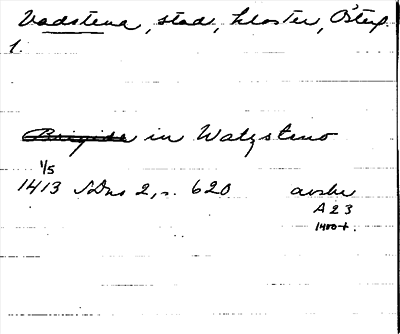 Vadstena, stad, kloster, Östg.
1.
Brigida in Watzsteno
1/5
1413 SDns 2, s. 620 avskr
A 23
1400+.